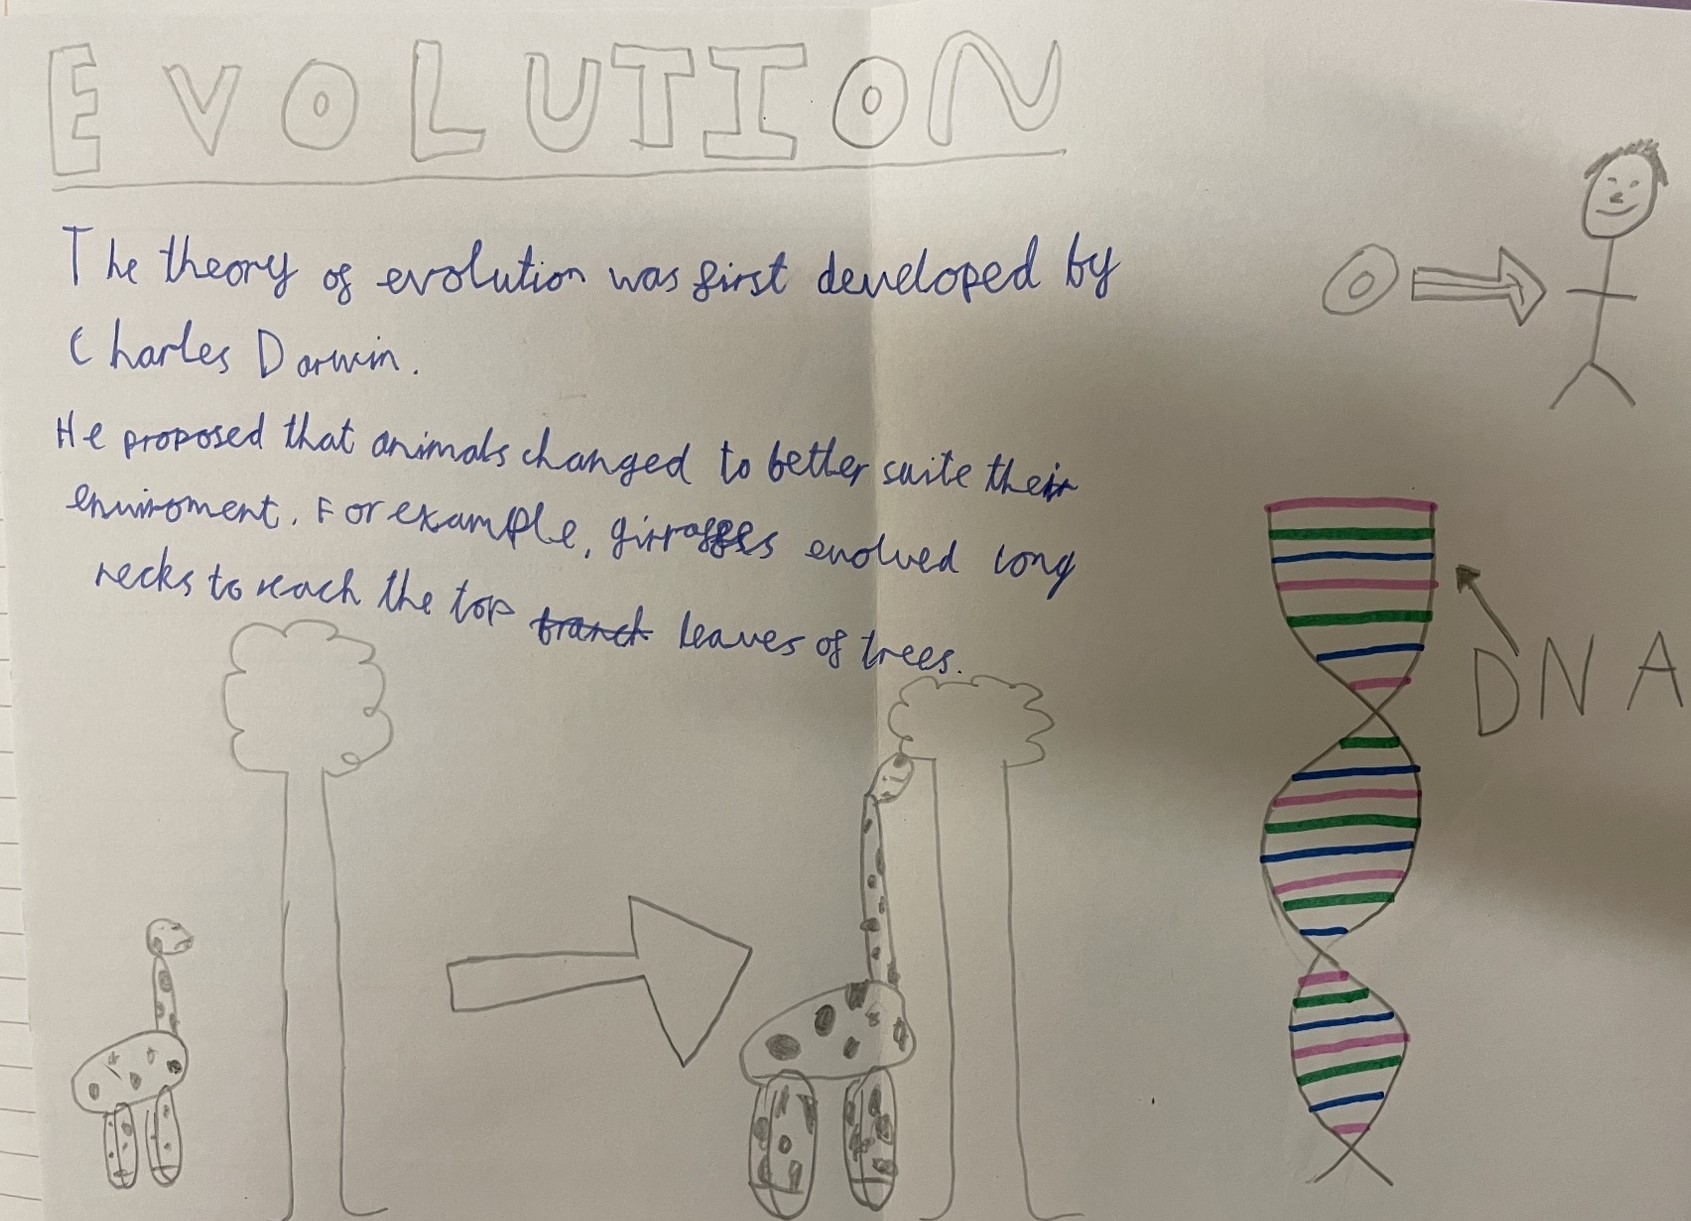 EVOLUTION
The theory of evolution was first developed by
Charles Darwin.
He proposed that animals changed to better suite their
enviroment. For example, girraffes evolved long
necks to reach the top branch leaves of trees.
DNA